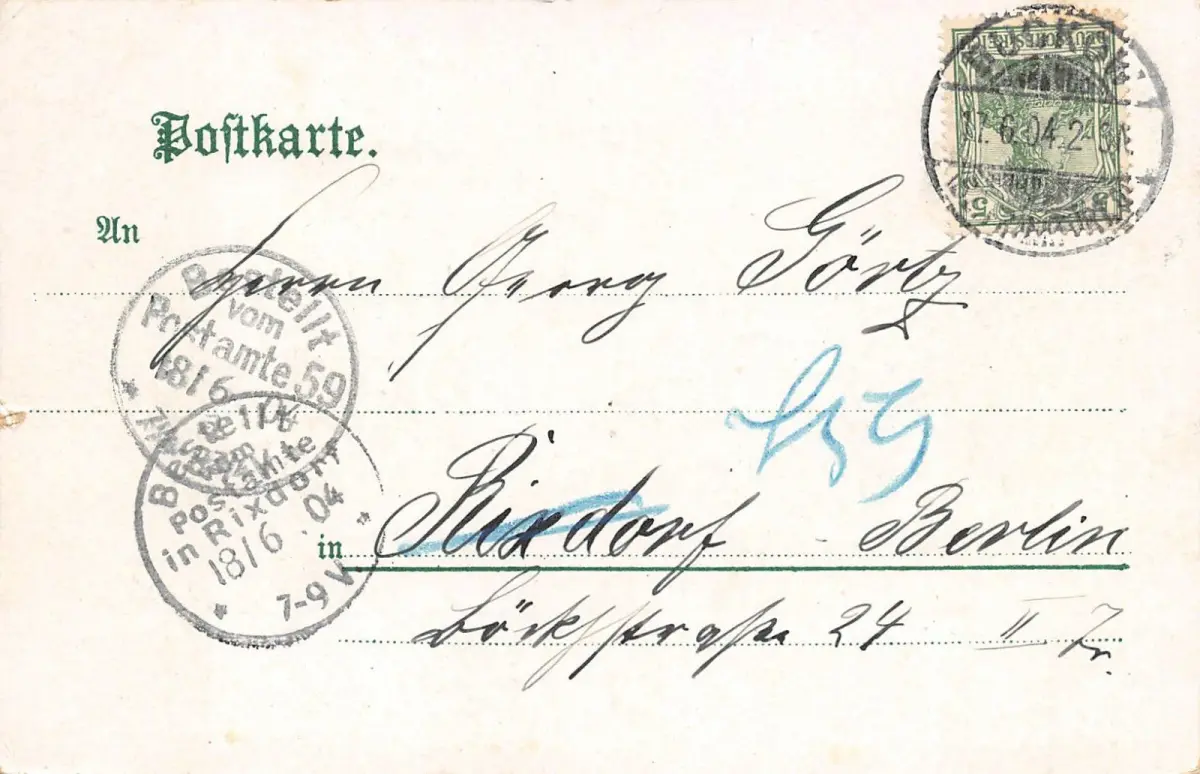 Postkarte.
DEUTSCHES REICH
5 5
17. 6. 04. 2
An
Herrn Georg Görtz
Bestellt
vom
Postamte 59
18/6 04
Bestellt
vom
Postamte
in Rixdorf
18/6 04
7-9 V.
in Rixdorf Berlin
Böckhstraße 24 II